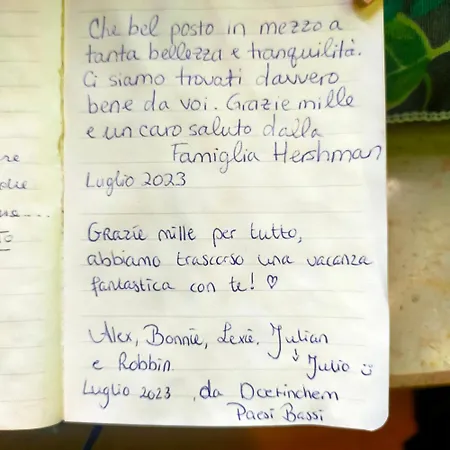 Che bel posto in mezzo a
tanta bellezza e tranquilità.
Ci siamo trovati davvero
bene da voi. Grazie mille
e un caro saluto dalla
Famiglia Hershman
Luglio 2023
Grazie mille per tutto,
abbiamo trascorso una vacanza
fantastica con te! ♡
Alex, Bonnie, Lexie, Julian
e Robbin ↳ Julio ☺
Luglio 2023, da Doetinchem
Paesi Bassi